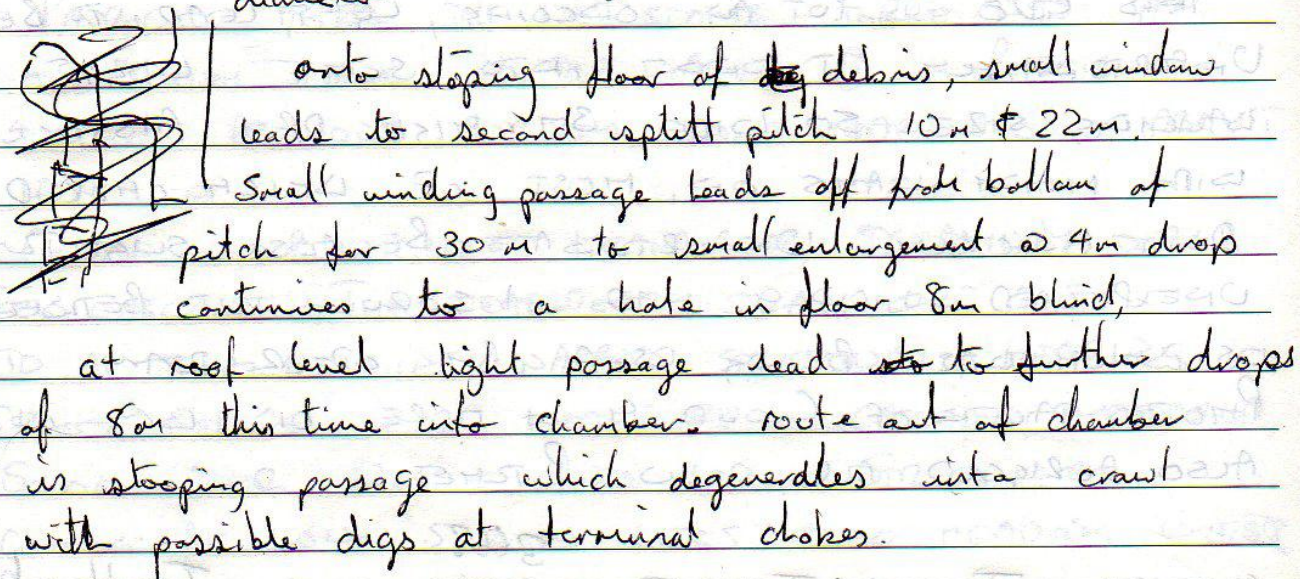 onto sloping floor of debris, small window
leads to second splitt pitch 10m & 22m.
Small winding passage leads off from bottom of
pitch for 30m to small enlargement a 4m drop
continues to a hole in floor 8m blind,
at roof level tight passage lead to further drops
of 8m this time into chamber. route out of chamber
is stooping passage which degenerates into crawl
with possible digs at terminal chokes.